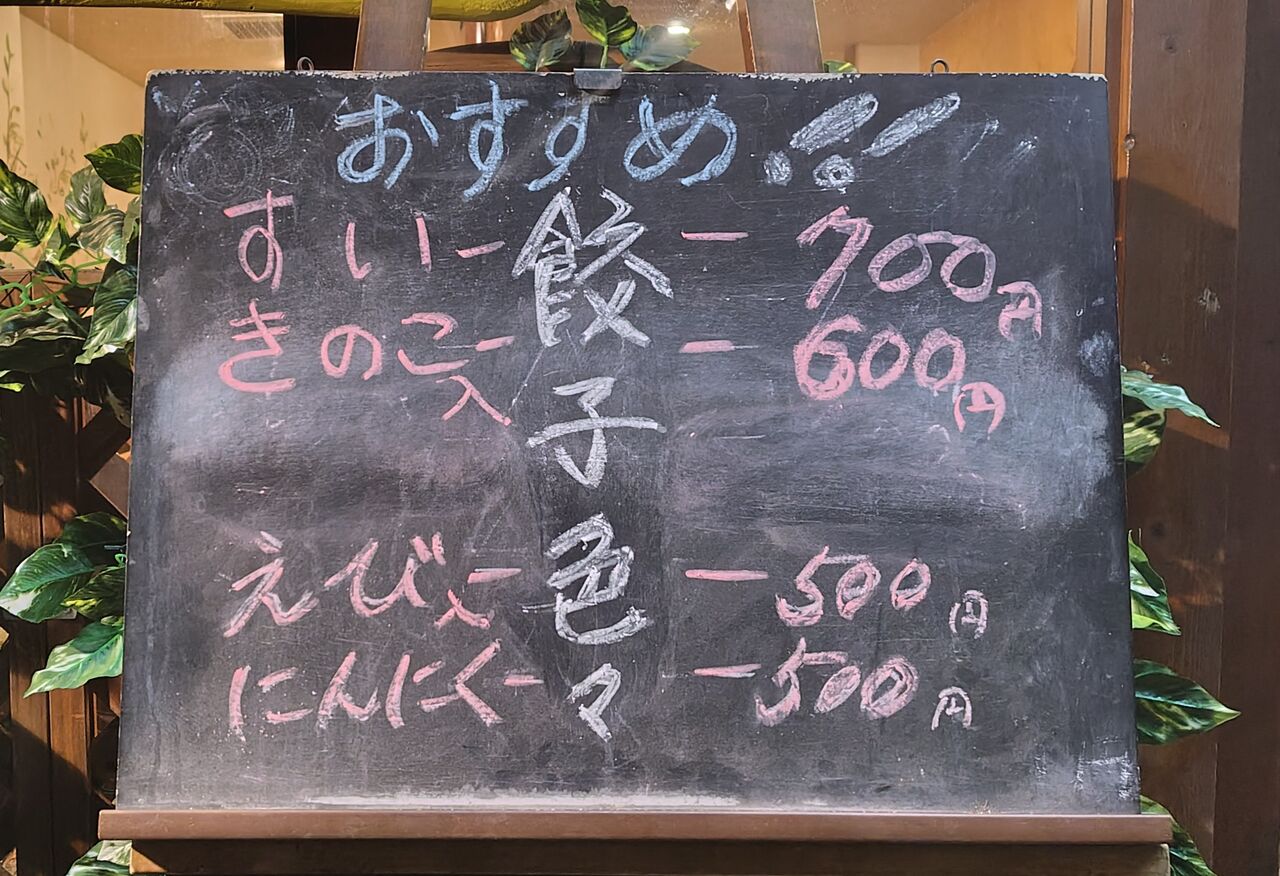 おすすめ!!
餃子色々
すいー ー700円
きのこ入ー ー600円
えび入ー ー500円
にんにくー ー500円